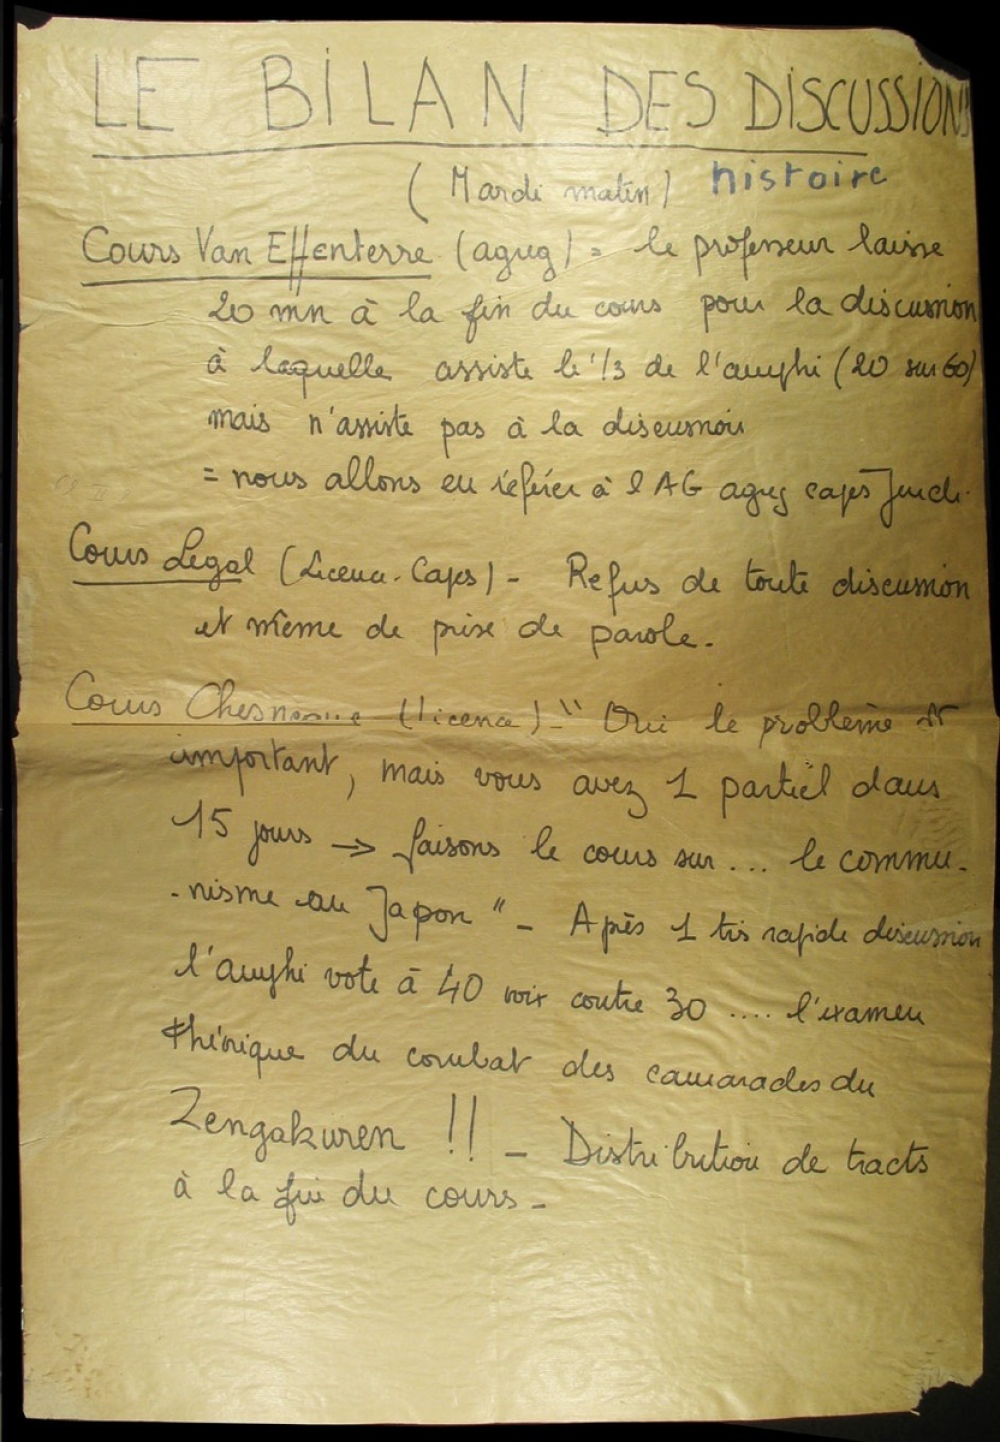 LE BILAN DES DISCUSSIONS
(Mardi matin) histoire
Cours Van Effenterre (agreg) = le professeur laisse
20 mn à la fin du cours pour la discussion
à laquelle assiste le 1/3 de l'amphi (20 sur 60)
mais n'assiste pas à la discussion
= nous allons en référer à l AG agreg capes Jeudi.
Cours Legal (Licence. Capes) - Refus de toute discussion
et même de prise de parole.
Cours Chesneaux (licence) - " Oui le problème est
important, mais vous avez 1 partiel dans
15 jours → faisons le cours sur ... le commu-
-nisme au Japon " - Après 1 très rapide discussion
l'amphi vote à 40 voix contre 30 .... l'examen
théorique du combat des camarades du
Zengakuren !! - Distribution de tracts
à la fin du cours -